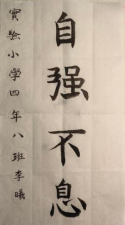 自强不息
实验小学四年八班李曦